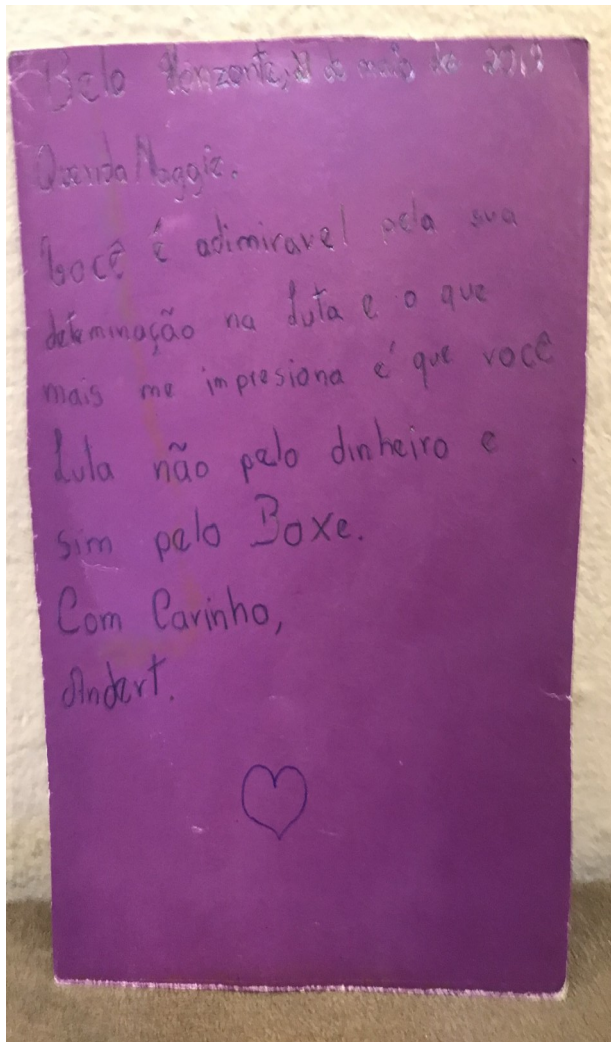 Belo Horizonte, de maio de
Querida Maggie.
Você é adimiravel pela sua
determinação na luta e o que
mais me impresiona é que você
Luta não pelo dinheiro e
sim pelo Boxe.
Com Carinho,
Andert.